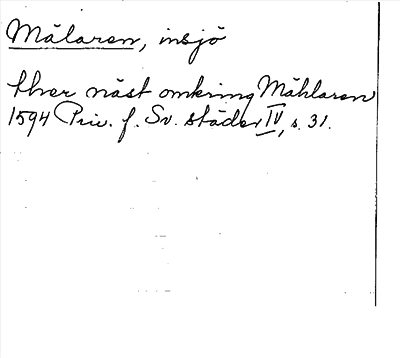 Mälaren, insjö
ther näst omkring Mählaren
1594 Priv. f. Sv. städer IV, s. 31.